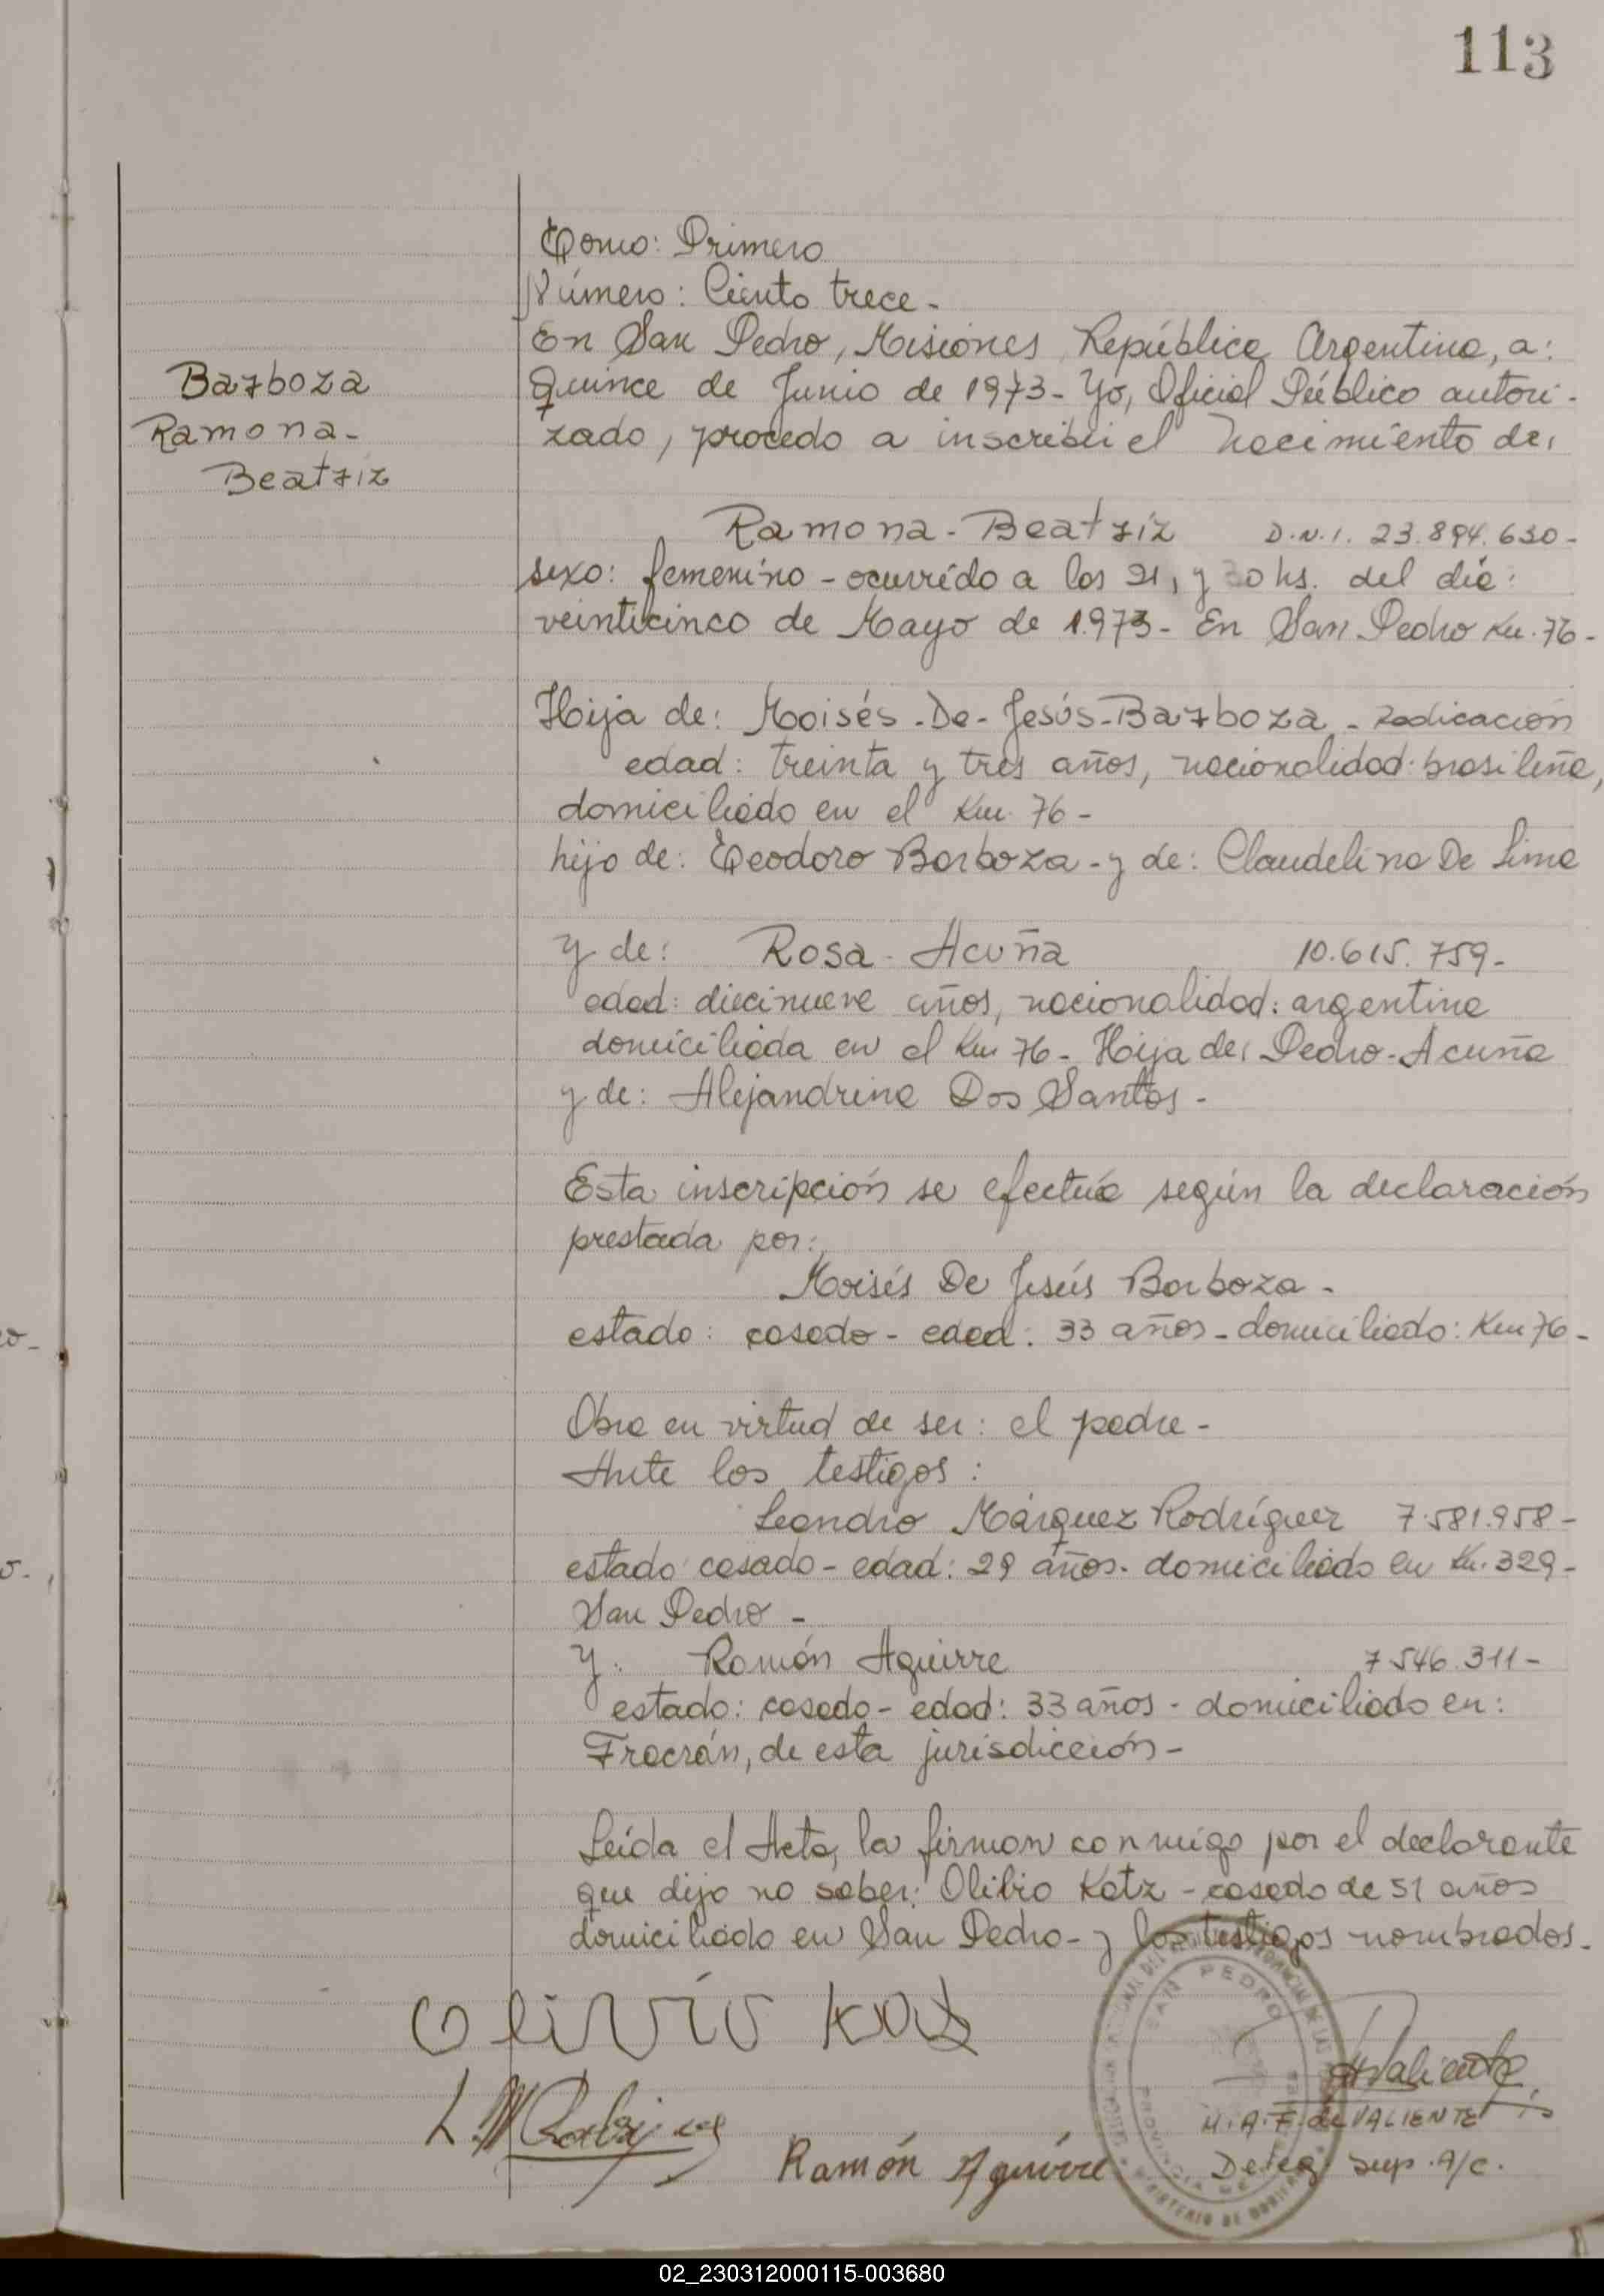 113
Tomo: Primero
Número: Ciento trece-
En San Pedro, Misiones, República Argentina, a:
Barboza
quince de Junio de 1973- Yo, Oficial Público autori-
Ramona-
zado, procedo a inscribir el nacimiento de:
Beatríz
Ramona-Beatríz D.N.I. 23.894.630-
sexo: femenino - ocurrido a las 21, y 30 hs. del día:
veinticinco de Mayo de 1.973- En San Pedro Km. 76-
Hija de: Moisés-De-Jesús-Barboza - radicación
edad: treinta y tres años, nacionalidad: brasileña,
domiciliado en el Km. 76-
hijo de: Teodoro Barboza - y de: Claudelina De Lima
y de: Rosa-Acuña 10.615.759-
edad: diecinueve años, nacionalidad: argentina
domiciliada en el Km 76- Hija de: Pedro-Acuña
y de: Alejandrina Dos Santos-
Esta inscripción se efectúa según la declaración
prestada por:
Moisés De Jesús Barboza-
estado: casado- edad: 33 años- domiciliado: Km 76-
Obra en virtud de ser: el padre-
Ante los testigos:
Leandro Márquez Rodríguez 7.581.958-
estado casado- edad: 29 años- domiciliado en Km. 329-
San Pedro-
y: Ramón Aguirre 7.546.311-
estado: casado- edad: 33 años- domiciliado en:
Fracrán, de esta jurisdicción-
Leída el Acta, la firman conmigo por el declarante
que dijo no saber: Olibio Kotz - casado de 51 años
domiciliado en San Pedro- y los testigos nombrados-
SAN PEDRO
H. A. F. de VALIENTE
Ramón Aguirre
Deleg. Sup. a/c.
02_230312000115-003680